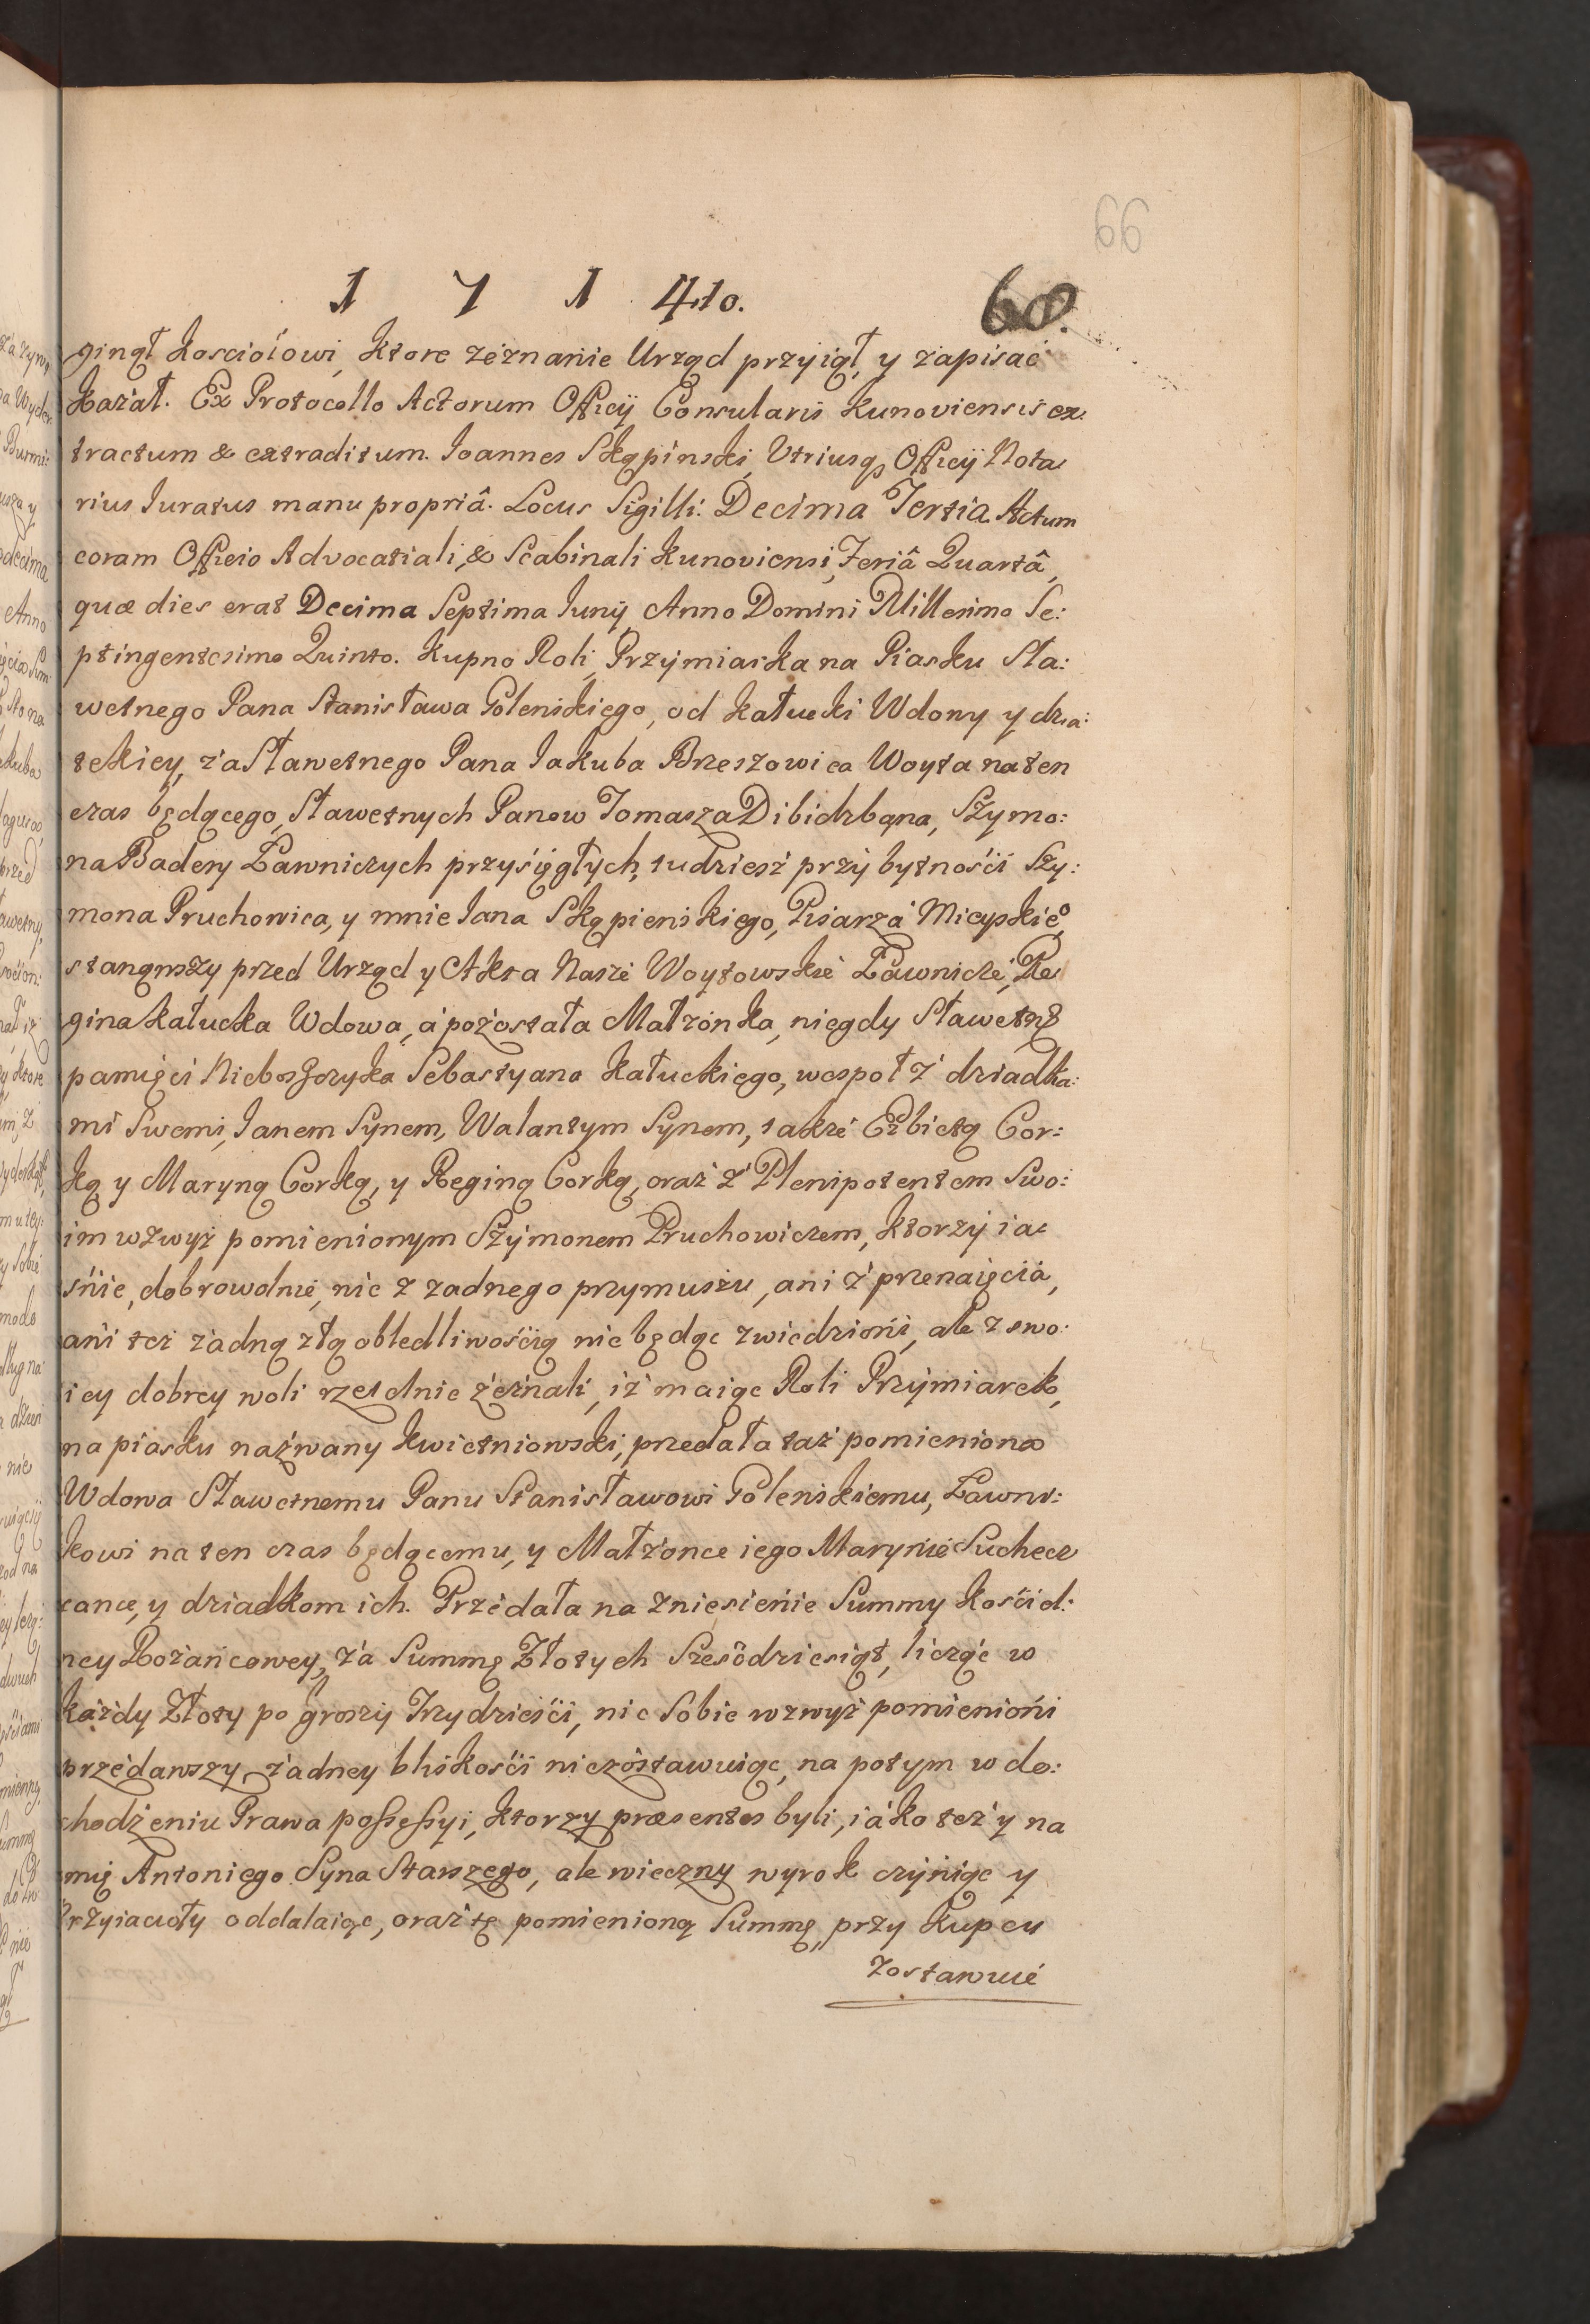 66
1 7 1 4to.
60.
ginął kosciołowi, ktore zeznanie Urząd przyiął, y zapisać
kazał. Ex Protocollo Actorum Officij Consularis Kunoviensis ex:
tractum & extraditum. Ioannes Skąpinski, Utriusq; Officij Nota
rius Iuratus manu propriâ. Locus Sigilli. Decima Tertia Actum
coram Officio Advocatiali, & Scabinali Kunoviensi, Feriâ Quartâ,
quæ dies erat Decima Septima Iunij Anno Domini Millesimo Se:
ptingentesimo Quinto. Kupno Roli, Przymiarka na Piasku Sła:
wetnego Pana Stanisława Polenskiego, od Kałucki Wdowy y dzia:
tekiey, za Sławetnego Pana Iakuba Brzeszowica Woyta na ten
czas będącego, Sławetnych Panow Tomasza Dibidzbana, Szymo:
na Badery Ławniczych przysięgłych, tudziesz przy bytności Szy:
mona Pruchowica, y mnie Iana Skąpienskiego, Pisarza Mieyskieo,
stanąwszy przed Urząd y Akta Nasze Woytowskie Ławnicze, Re
gina Kałucka Wdowa, a pozostała Małzonka, niegdy Sławetny
pamięci Nieboszczyka Sebastyana Kałuckiego, wespoł z dziadka:
mi Swemi, Ianem Synem, Walantym Synem, takze Elzbietą Cor:
ką y Maryną Corką, y Reginą Corką, oraz z Plenipotentem Swo:
im wzwyz pomienionym Szymonem Pruchowiczem, ktorzy ia
śnie, dobrowolnie, nie z zadnego przymuszu, ani z przenaięcia,
ani tez zadną złą obłedliwością nie będąc zwiedzioni, ale z swo:
iey dobrey woli rzetelnie zeznali, iz maiąc Roli Przymiarek,
na piasku nazwany Kwietniowski, przedała taz pomieniona
Wdowa Sławetnemu Panu Stanisławowi Polenskiemu, Ławni:
kowi na ten czas będącemu, y Małzonce iego Marynie Suchecz
zance, y dziadkom ich. Przedała na zniesienie Summy kościel:
ney Rozańcowey, za Summę Złotych Sześćdziesiąt, licząc w
kazdy Złoty po groszy Trzydzieści, nic Sobie wzwyz pomienioni
przedawszy, zadney bliskości niezostawuiąc, na potym w do:
chodzeniu Prawa possessyi, ktorzy præsentes byli, iako tez y na
mię Antoniego Syna Starszego, ale wieczny wyrok czyniąc y
Przyiacioły oddalaiąc, oraz tę pomienioną Summę, przy Kupcu
zostawuie